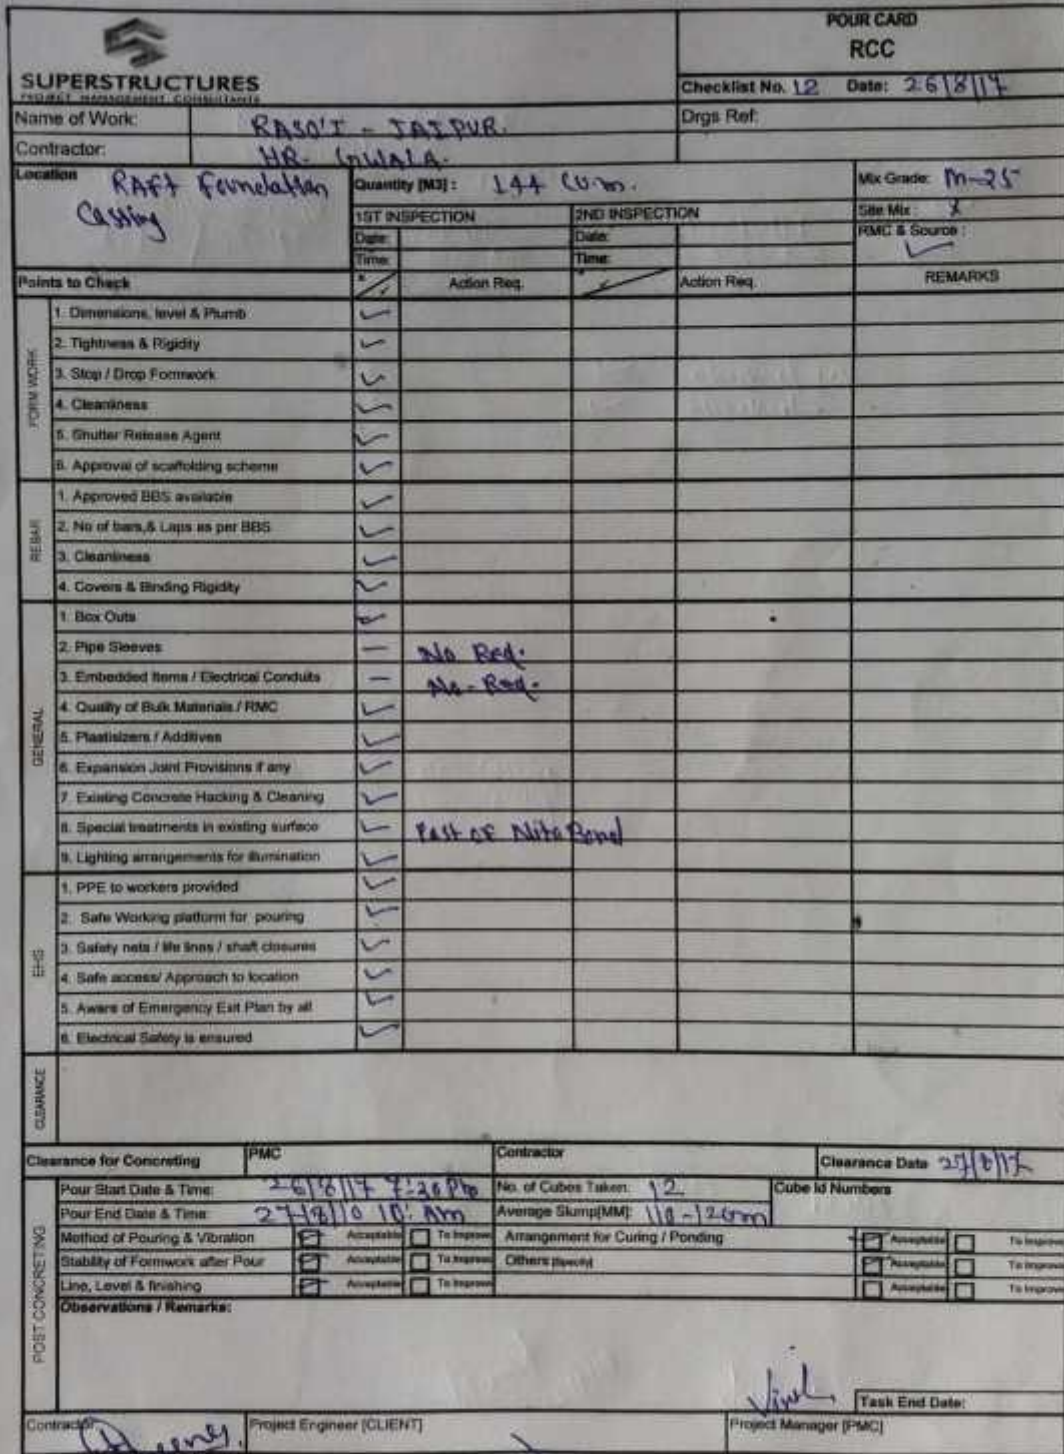 SUPERSTRUCTURES
PROJECT MANAGEMENT CONSULTANTS
POUR CARD
RCC
Checklist No. 12 Date: 26/8/17
Name of Work: RASO'I - JAIPUR.
Drgs Ref:
Contractor: HR- GWALA.
Location RAFT Foundation
Casting
Quantity [M3] : 144 cum.
Mix Grade: M-25
1ST INSPECTION 2ND INSPECTION Site Mix : X
Date: Date: RMC & Source : ✓
Time: Time:
Points to Check Action Req. Action Req. REMARKS
FORM WORK
1. Dimensions, level & Plumb ✓
2. Tightness & Rigidity ✓
3. Stop / Drop Formwork ✓
4. Cleanliness ✓
5. Shutter Release Agent ✓
6. Approval of scaffolding scheme ✓
REBAR
1. Approved BBS available ✓
2. No of bars,& Laps as per BBS ✓
3. Cleanliness ✓
4. Covers & Binding Rigidity ✓
GENERAL
1. Box Outs ✓
2. Pipe Sleeves — No Req.
3. Embedded Items / Electrical Conduits — No-Req.
4. Quality of Bulk Materials / RMC ✓
5. Plastisizers / Additives ✓
6. Expansion Joint Provisions if any ✓
7. Existing Concrete Hacking & Cleaning ✓
8. Special treatments in existing surface ✓ Past of Nito Bond
9. Lighting arrangements for illumination ✓
EHS
1. PPE to workers provided ✓
2. Safe Working platform for pouring ✓
3. Safety nets / life lines / shaft closures ✓
4. Safe access/ Approach to location ✓
5. Aware of Emergency Exit Plan by all ✓
6. Electrical Safety is ensured ✓
CLEARANCE
Clearance for Concreting PMC Contractor Clearance Date 27/8/17
POST CONCRETING
Pour Start Date & Time: 26/8/17 7:30 Pm No. of Cubes Taken: 12 Cube Id Numbers
Pour End Date & Time: 27/8/10 10: AM Average Slump[MM]: 110-120mm
Method of Pouring & Vibration Acceptable To Improve Arrangement for Curing / Ponding Acceptable To Improve
Stability of Formwork after Pour Acceptable To Improve Others [Specify] Acceptable To Improve
Line, Level & finishing Acceptable To Improve Acceptable To Improve
Observations / Remarks:
Task End Date:
Contractor Project Engineer [CLIENT] Project Manager [PMC]